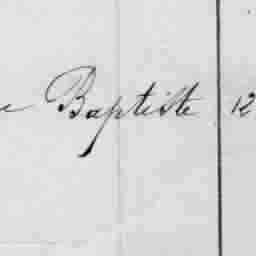 e Baptiste 12